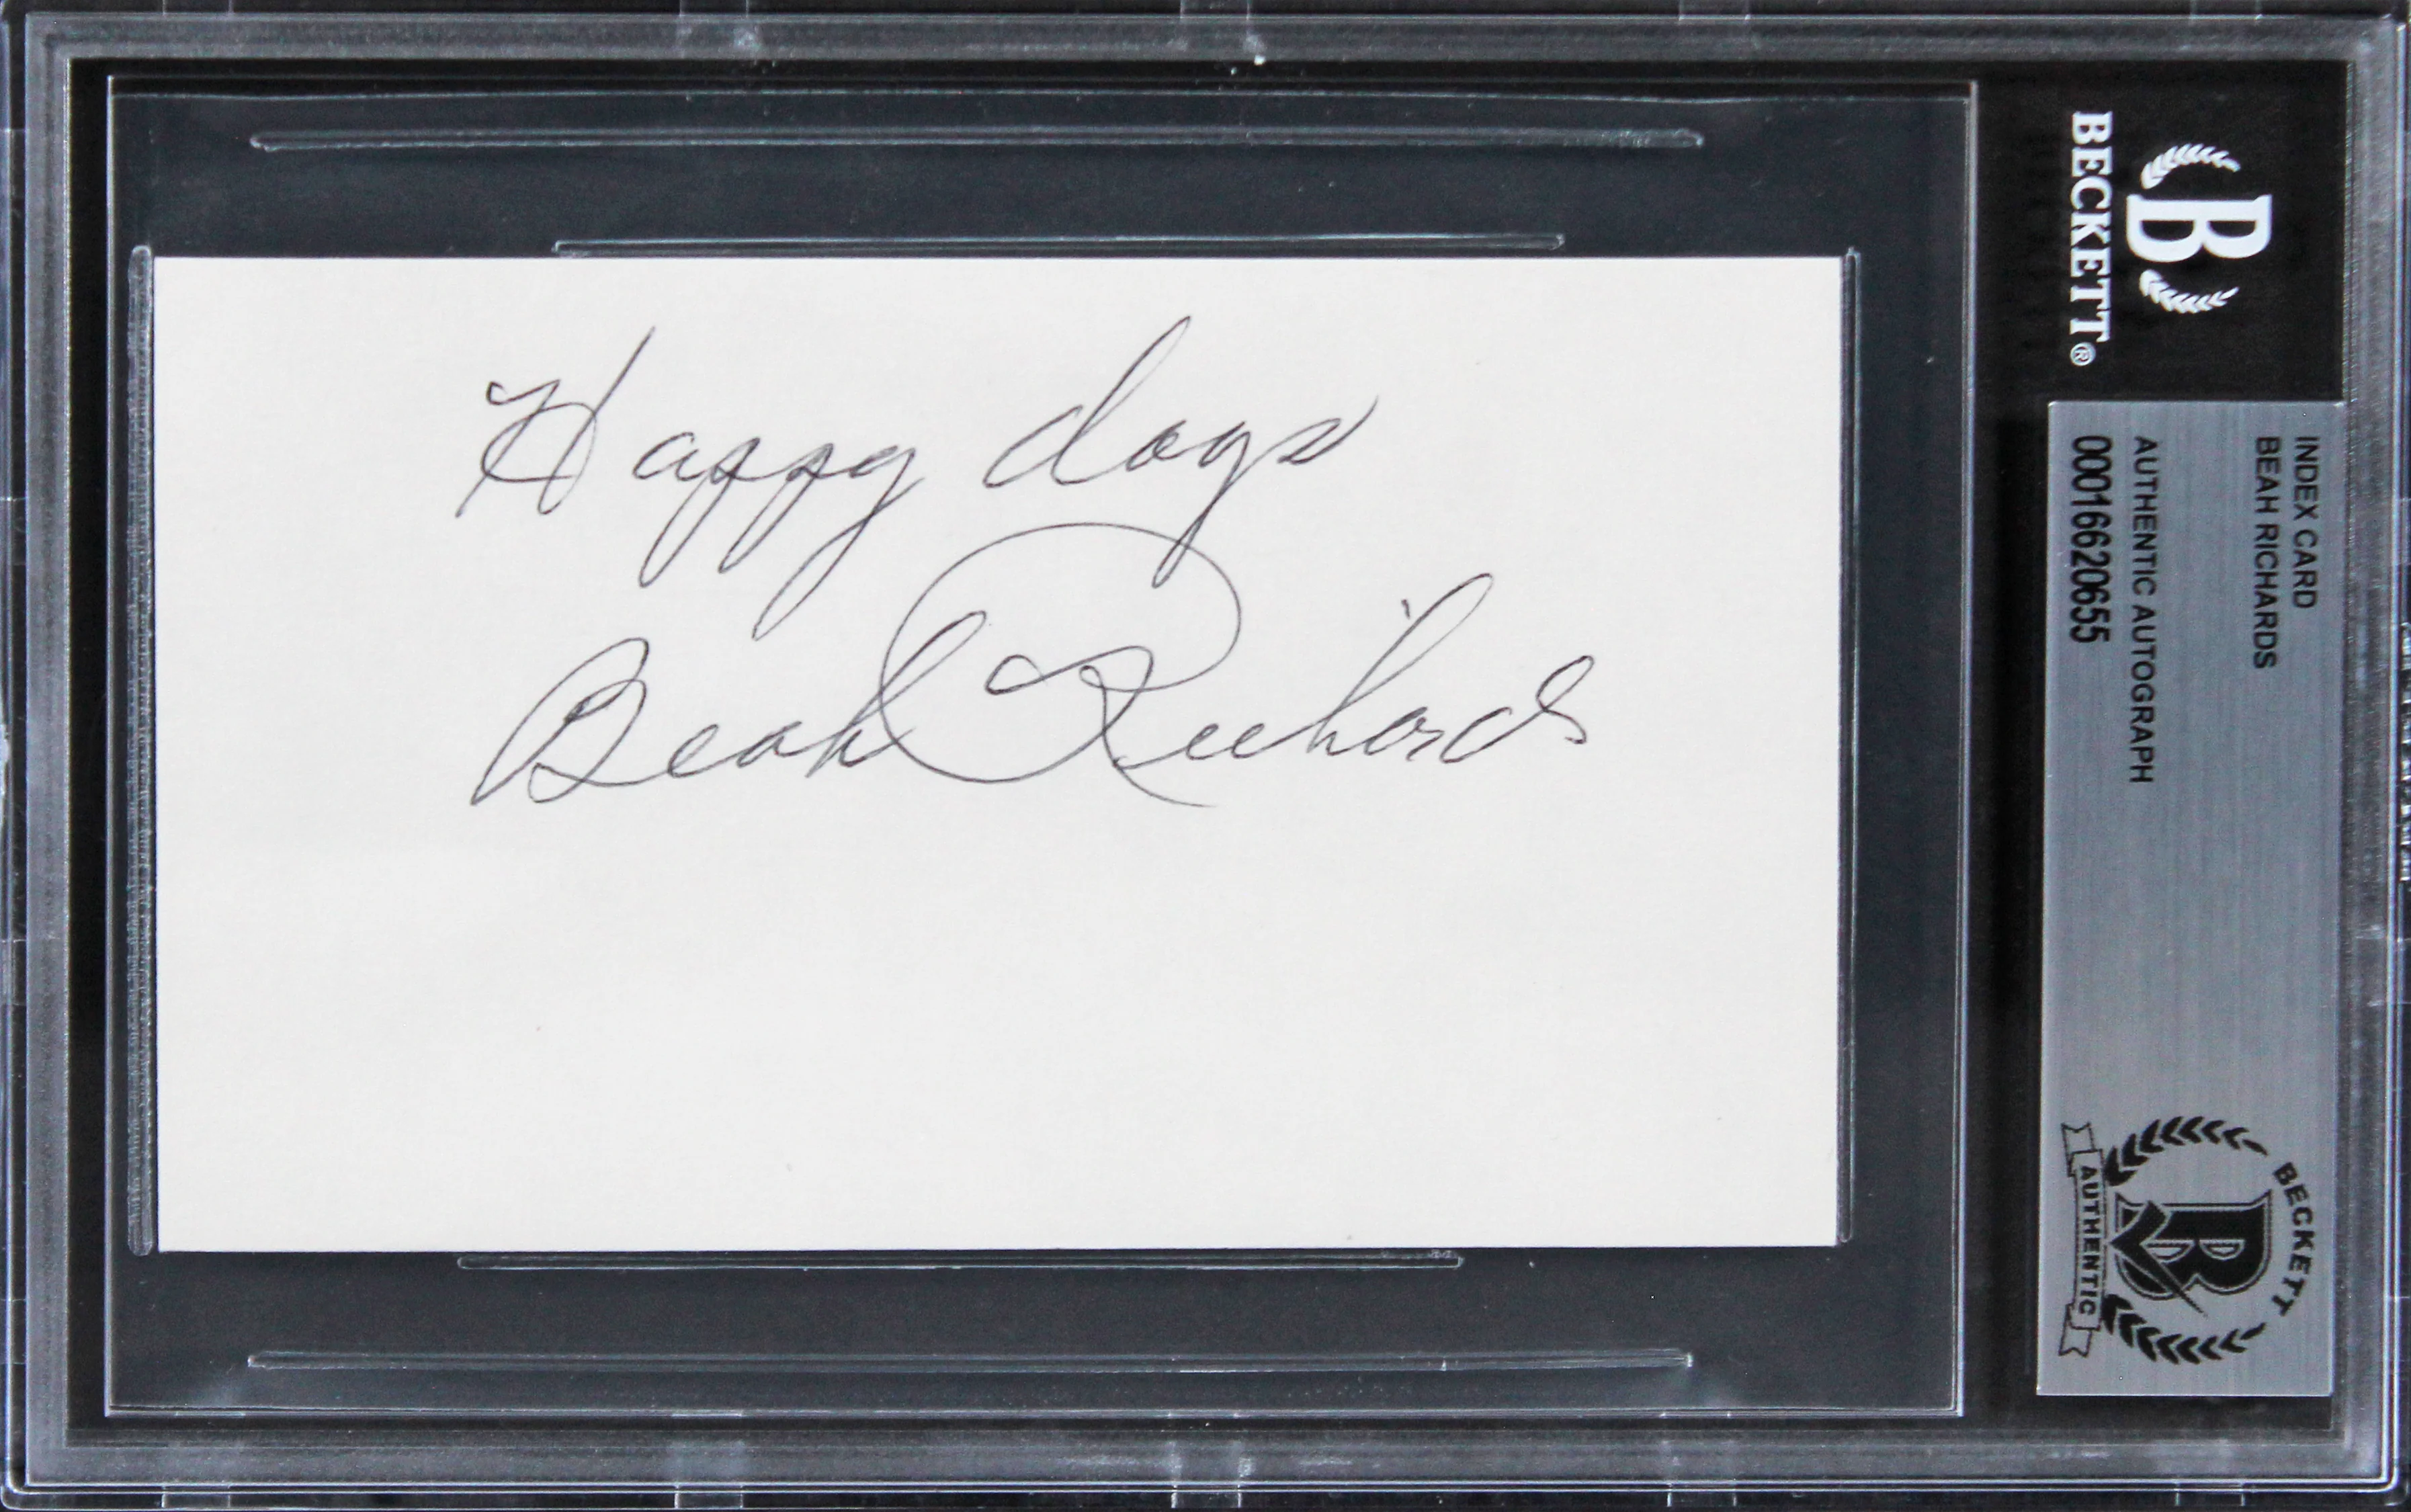 Happy days
Beah Richards
B
BECKETT®
INDEX CARD
BEAH RICHARDS
AUTHENTIC AUTOGRAPH
00016620655
BECKETT
B
AUTHENTIC